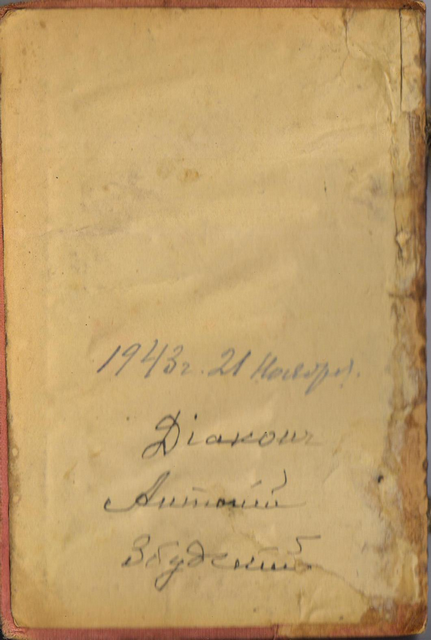 1943г. 21 Ноября.
Діаконъ
Антоній
Збудскій